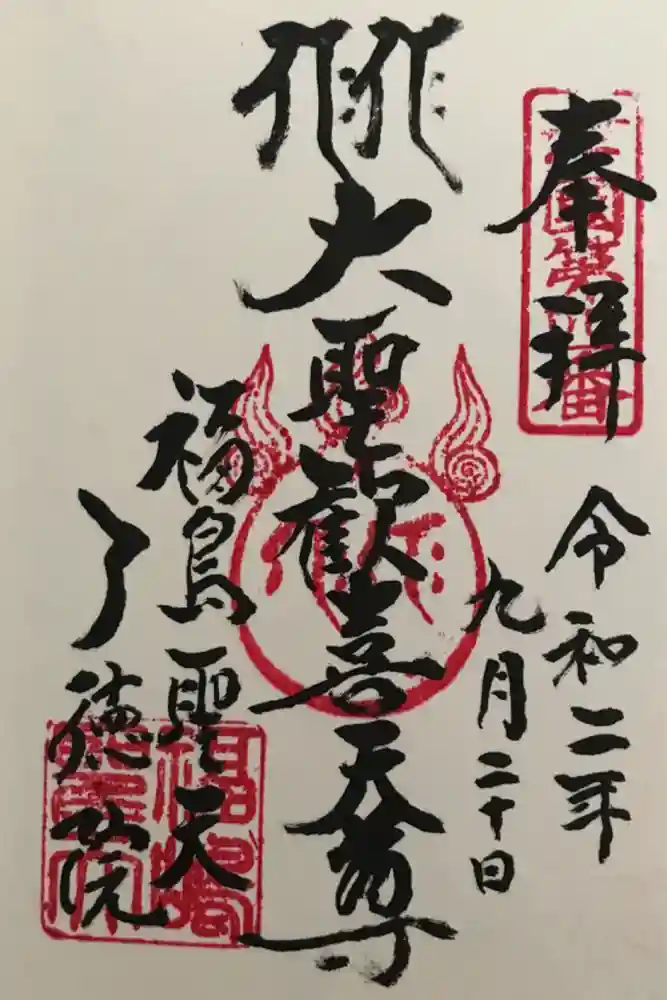 奉拝
令和二年
九月二十日
大聖歓喜天尊
福島聖天
了徳院